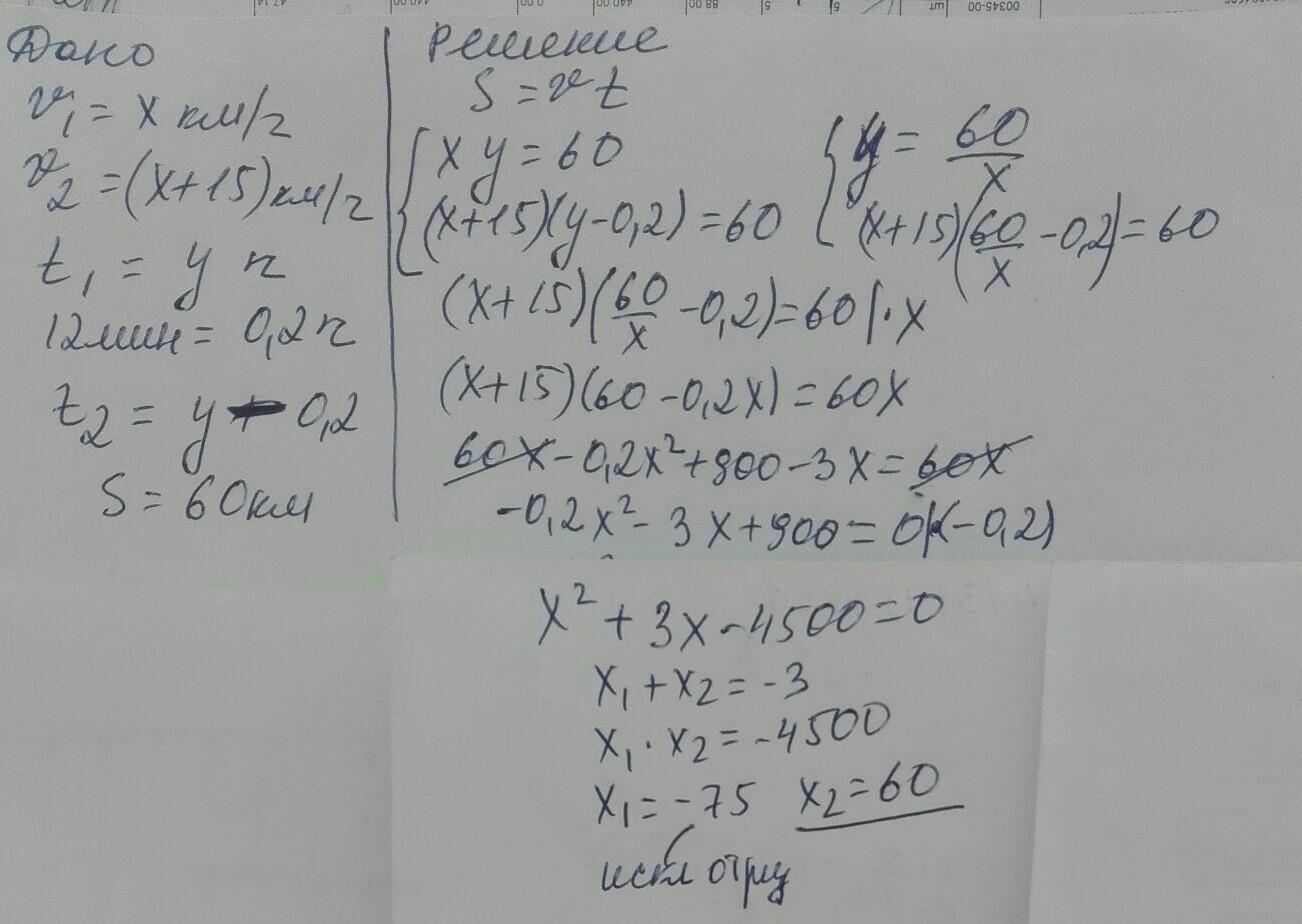 Дано
v₁ = x км/ч
v₂ = (x+15) км/ч
t₁ = y ч
12 мин = 0,2 ч
t₂ = y - 0,2
S = 60 км
Решение
S = v t
{ x y = 60
(x+15)(y-0,2) = 60
{ y = 60/x
(x+15)(60/x - 0,2) = 60
(x+15)(60/x - 0,2) = 60 | · x
(x+15)(60 - 0,2x) = 60x
60x - 0,2x² + 900 - 3x = 60x
-0,2x² - 3x + 900 = 0 |:(-0,2)
x² + 3x - 4500 = 0
x₁ + x₂ = -3
x₁ · x₂ = -4500
x₁ = -75 x₂ = 60
00345-00 шт 5 5 88.00 440.00 0.00 440.00 47.14